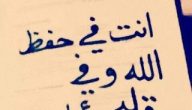 انت في حفظ
الله وفي